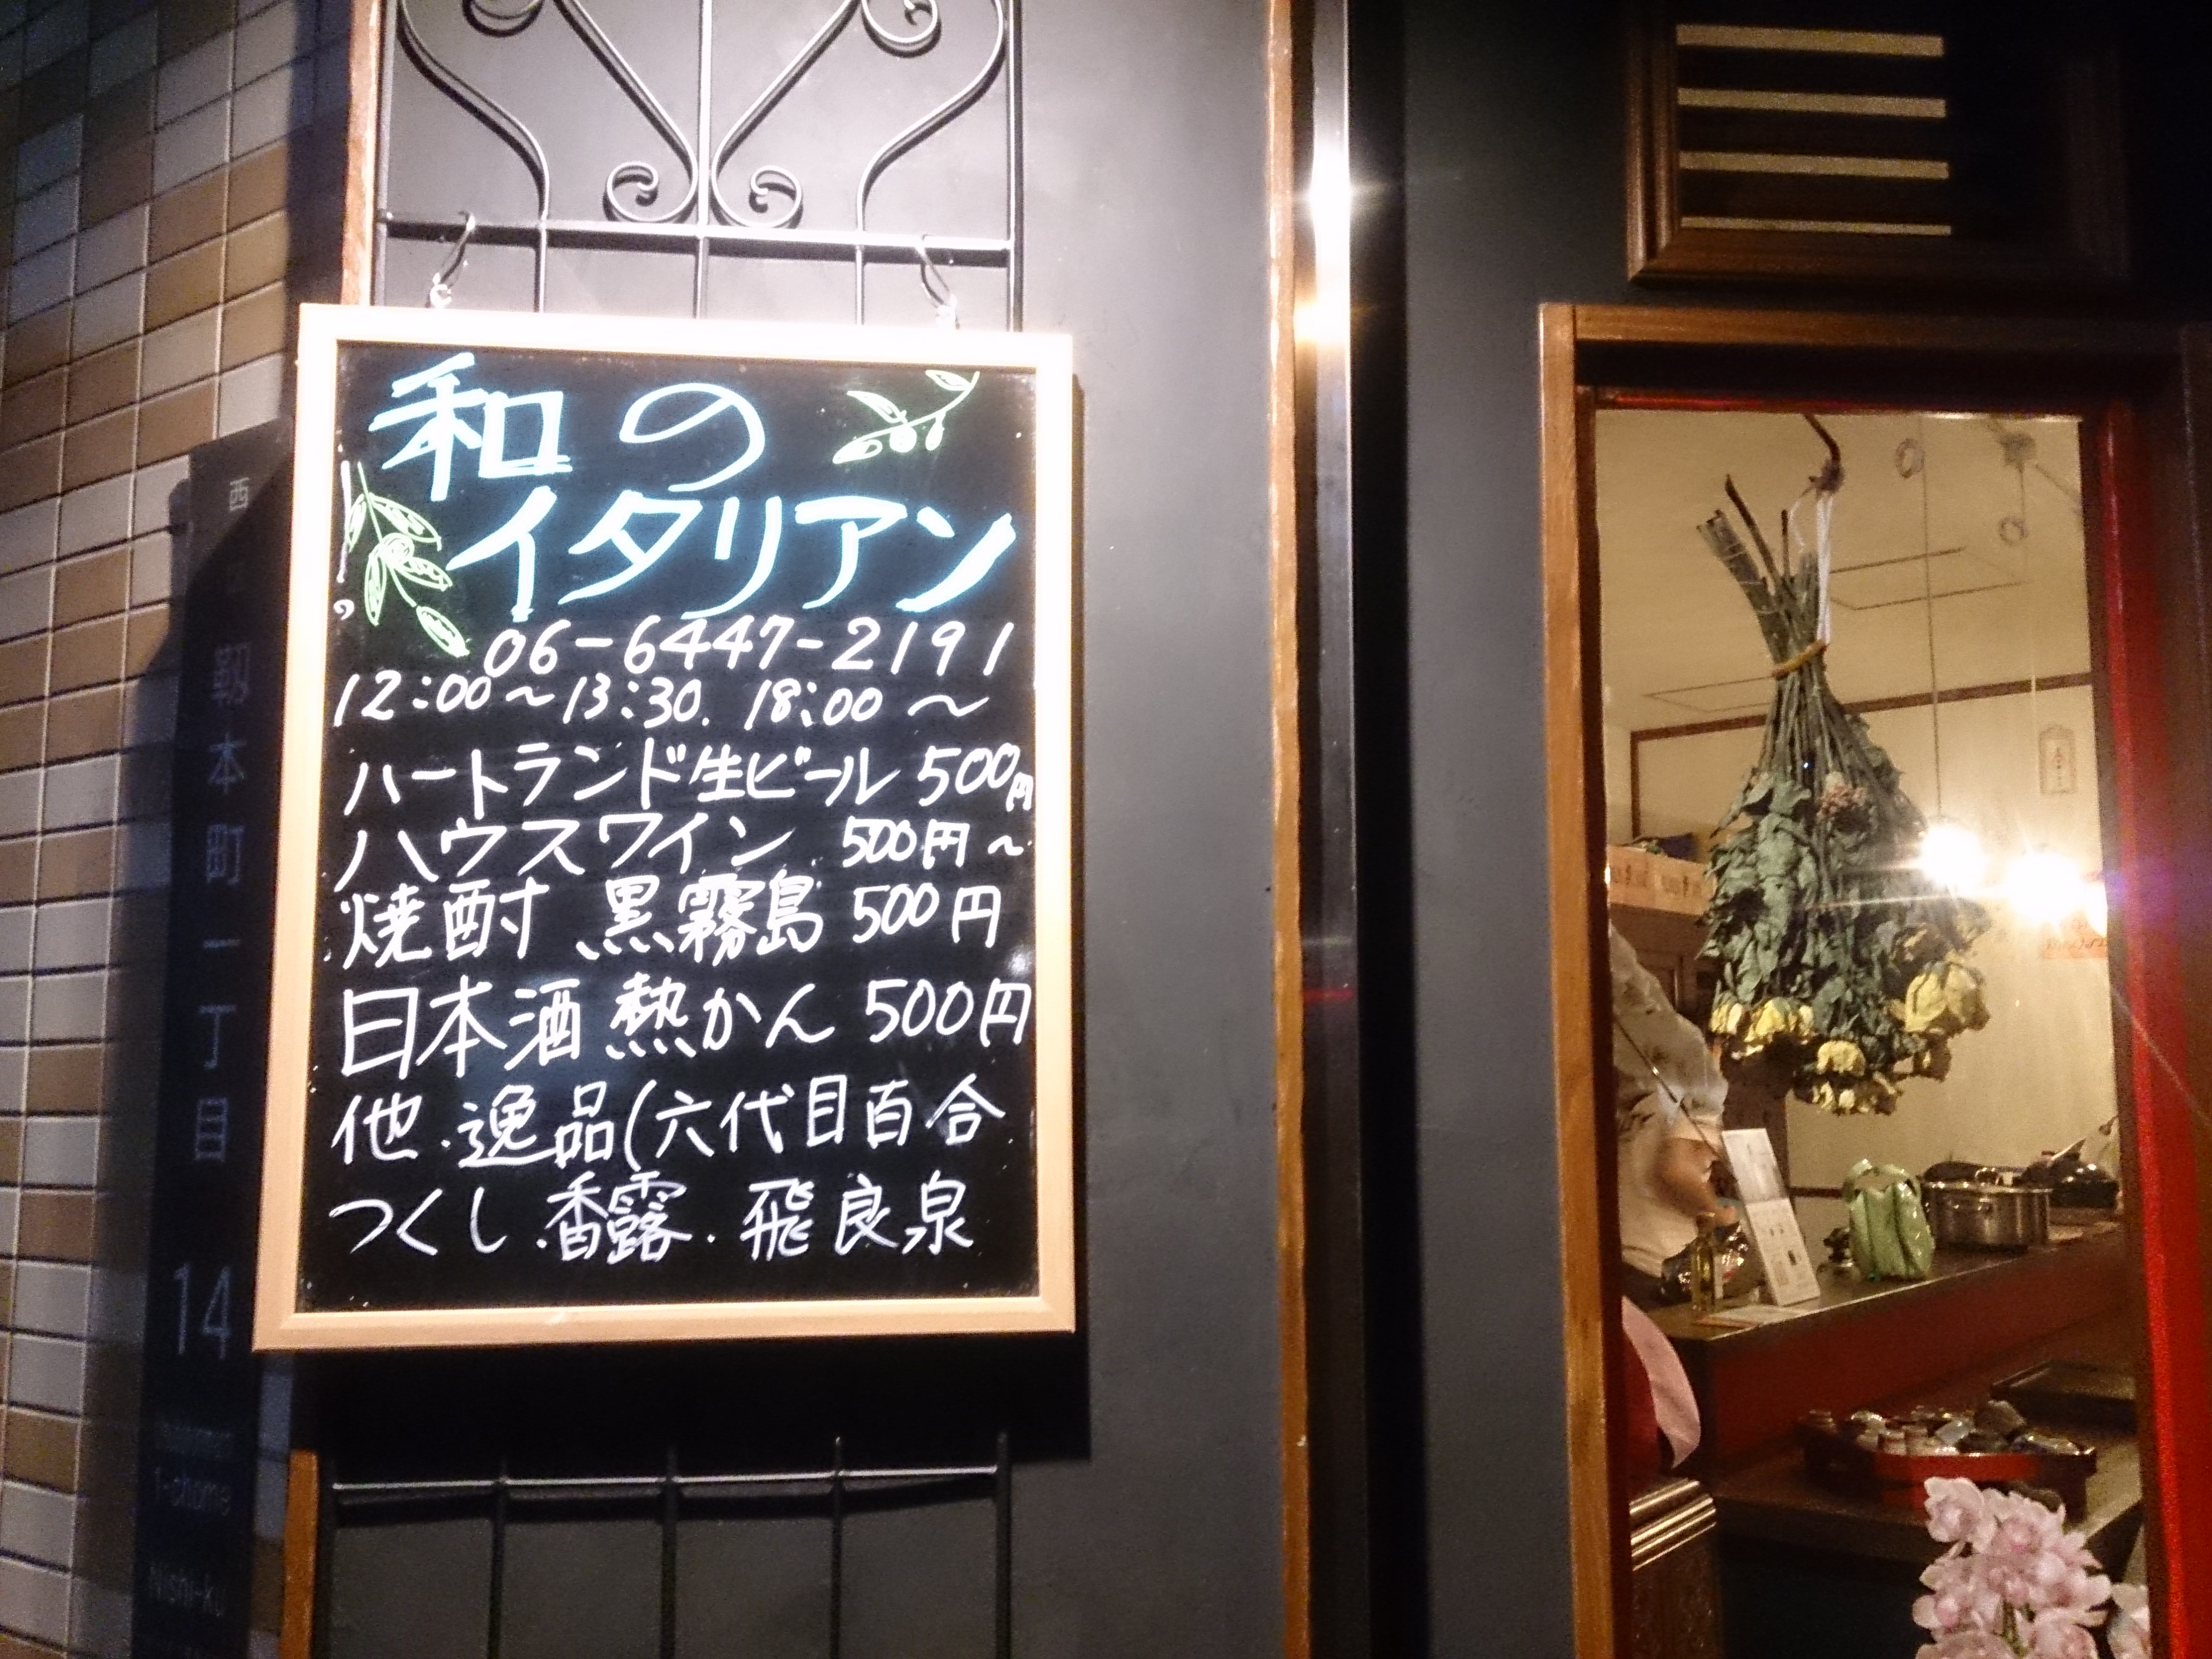 和の
イタリアン
06-6447-2191
12:00~13:30. 18:00~
ハートランド生ビール 500円
ハウスワイン 500円~
焼酎 黒霧島 500円
日本酒 熱かん 500円
他.逸品(六代目百合
つくし.香露.飛良泉
西
靱
本
町
一
丁
目
14
1-chome
Nishi-ku